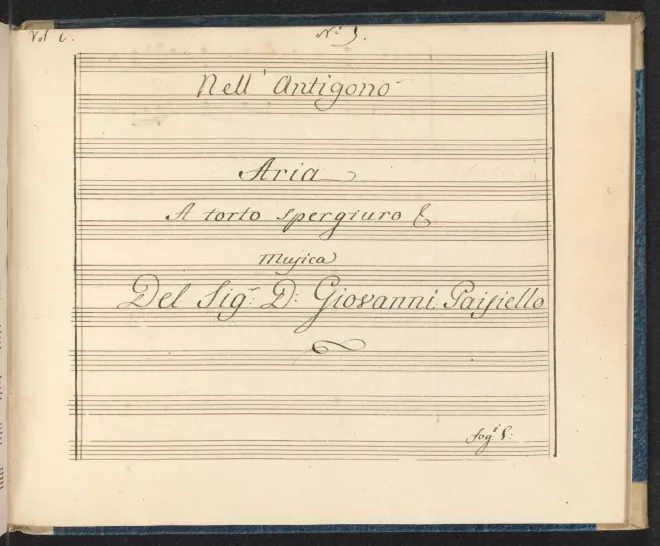 Vol C.
Nº
Nell' Antigono
Aria
A torto spergiuro &
Musica
Del Sigr: D: Giovanni Paisiello
fogi